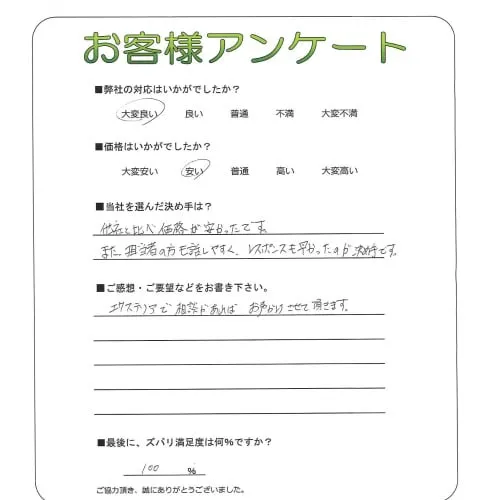 お客様アンケート
■弊社の対応はいかがでしたか？
大変良い 良い 普通 不満 大変不満
■価格はいかがでしたか？
大変安い 安い 普通 高い 大変高い
■当社を選んだ決め手は？
他社と比べ価格が安かったです。
また担当者の方も話しやすく、レスポンスも早かったのが決め手です。
■ご感想・ご要望などをお書き下さい。
エクステリアで相談があればお声かけさせて頂きます。
■最後に、ズバリ満足度は何%ですか？
100 %
ご協力頂き、誠にありがとうございました。